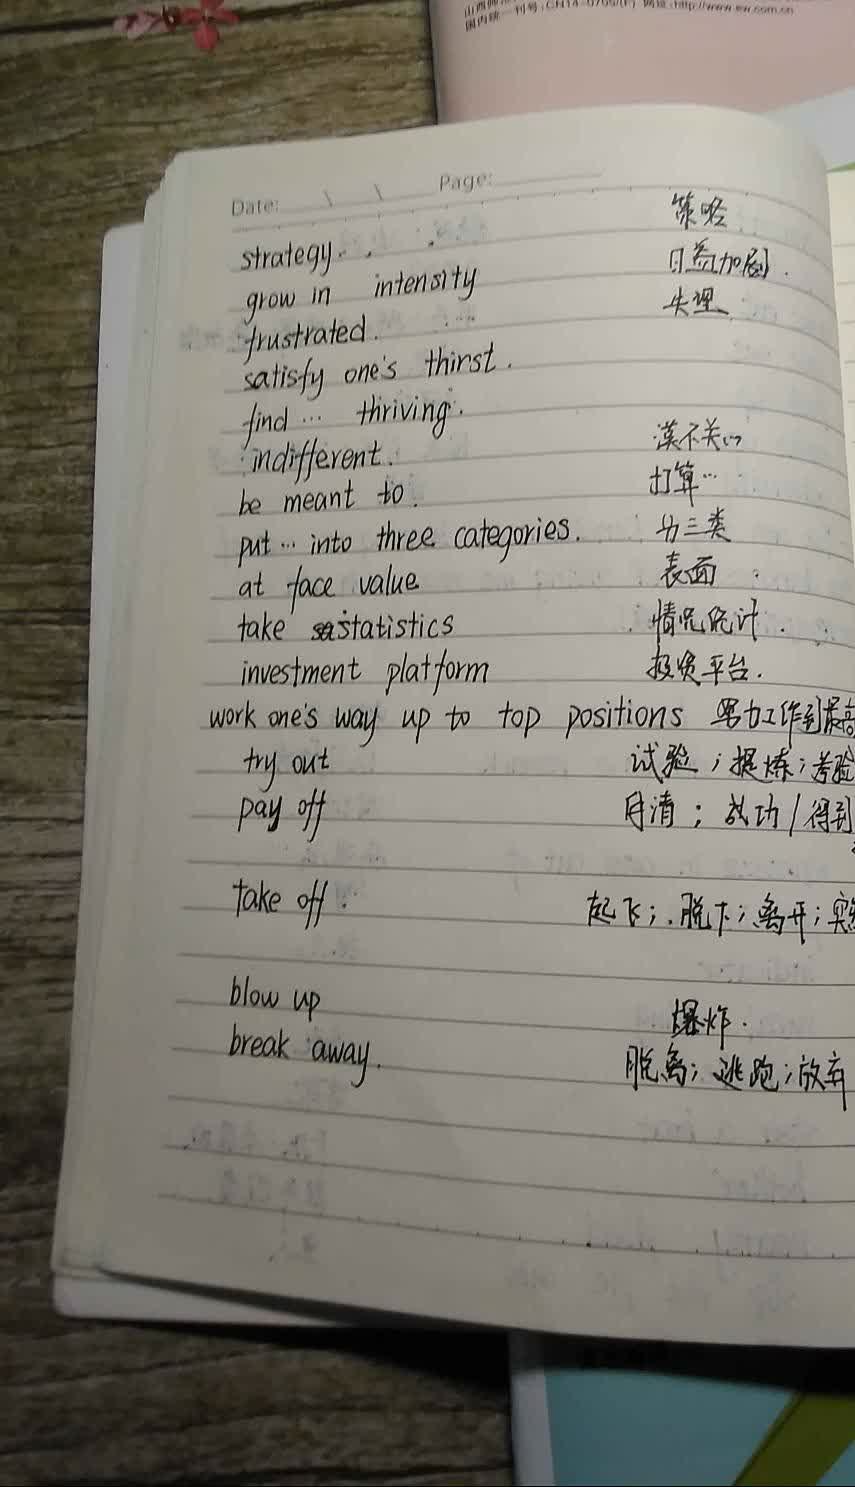 国内统一刊号:CN14-0705/(F) 网址:http://www.ew.com.cn
Date: \ \ Page:
strategy. 策略
grow in intensity 日益加剧.
frustrated. 失理
satisfy one's thirst.
find … thriving.
indifferent. 漠不关心
be meant to. 打算…
put … into three categories. 分三类
at face value 表面
take statistics 情况统计.
investment platform 投资平台.
work one's way up to top positions 努力工作到最高
try out 试验；提炼；考验
pay off 付清；成功/得到
take off. 起飞；脱下；离开；突
blow up 爆炸.
break away. 脱离；逃跑；放弃